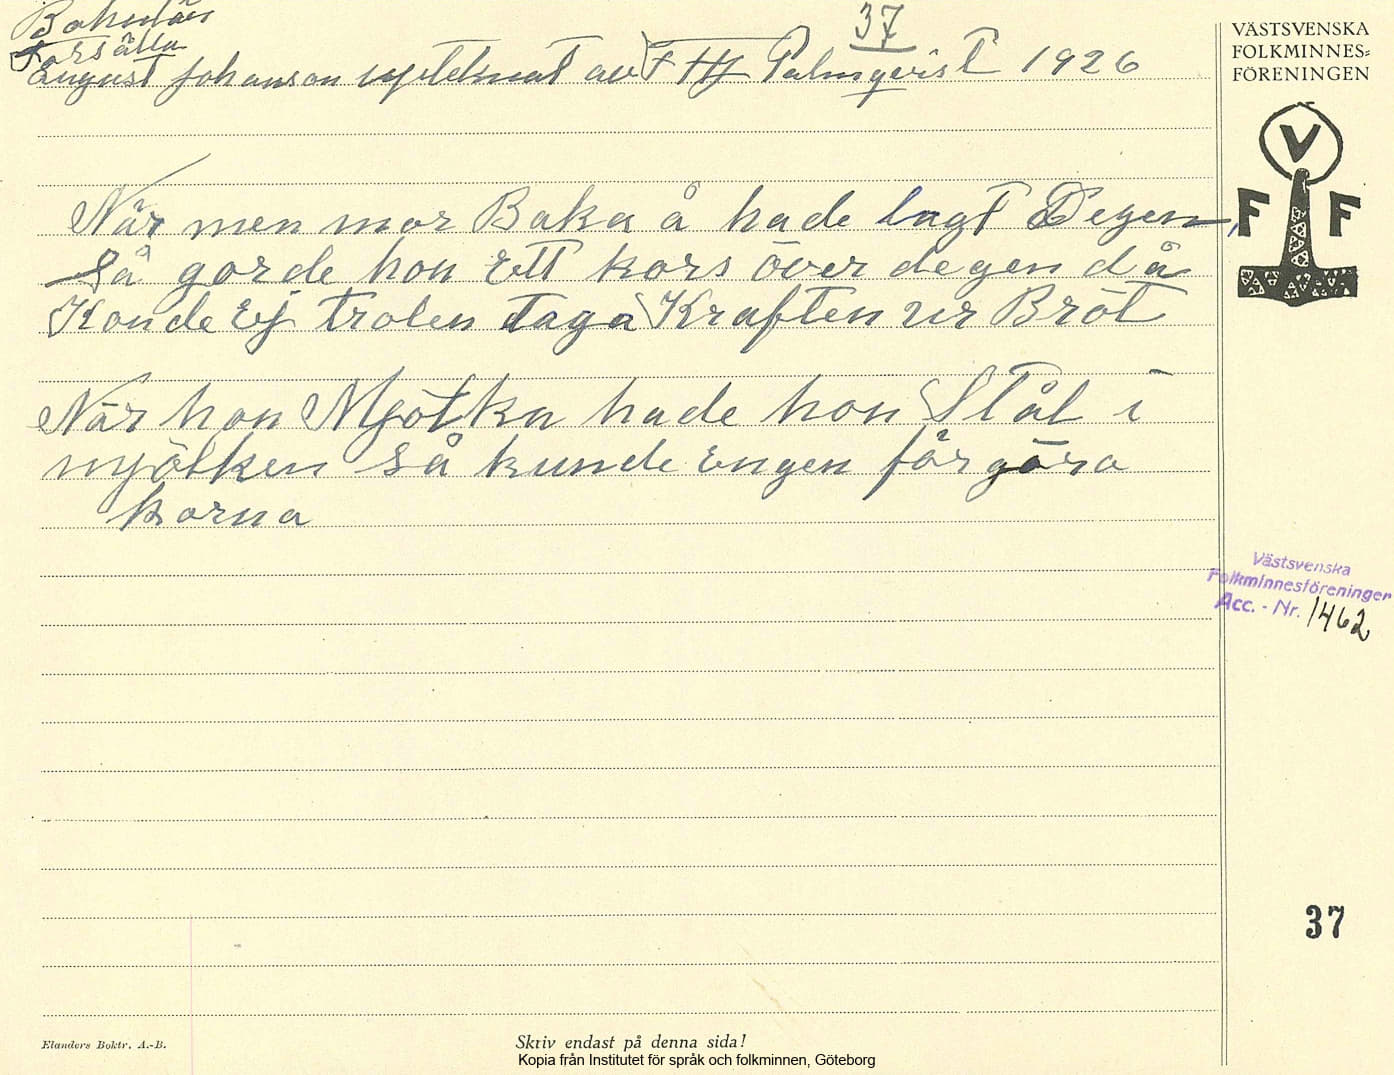 Bokenäs
Torsälla
37
August Johanson upteknat av T Hj Palmqvist 1926
När men mor Baka å hade lagt Degen,
så gorde hon Ett kors över degen då
Konde Ej trolen taga Kraften ur Bröt
När hon Mjölka hade hon Stål i
mjölken så kunde Engen förgöra
korna
VÄSTSVENSKA
FOLKMINNES=
FÖRENINGEN
V
F F
Västsvenska
Folkminnesföreningen
Acc. - Nr. 1462
37
Elanders Boktr. A.-B.
Skriv endast på denna sida!
Kopia från Institutet för språk och folkminnen, Göteborg